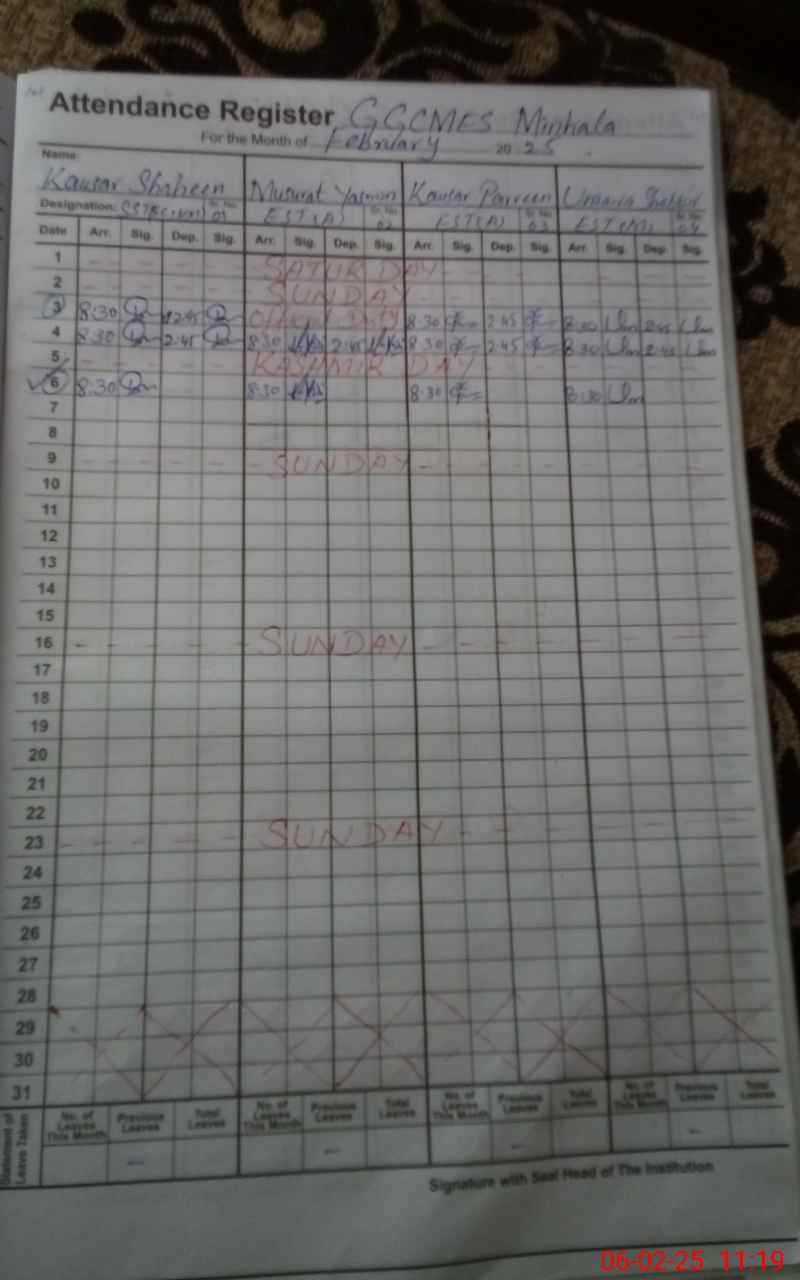 Attendance Register GGCMES Minhala
For the Month of February 2025
Name:
Kausar Shaheen Musarat Yasmin Kausar Parveen
Designation: Sr. No. 01 EST(A) Sr. No. 02 EST(A) Sr. No. 03 EST(M) Sr. No. 04
Date Arr. Sig. Dep. Sig. Arr. Sig. Dep. Sig. Arr. Sig. Dep. Sig. Arr. Sig. Dep. Sig.
1 SATURDAY
2 SUNDAY
3 8:30 2:45 8:30 2:45 8:30 2:45
4 8:30 2:45 8:30 2:45 8:30 2:45 8:30 2:45
5 KASHMIR DAY
6 8:30 8:30 8:30 8:30
7
8
9 SUNDAY
10
11
12
13
14
15
16 SUNDAY
17
18
19
20
21
22
23 SUNDAY
24
25
26
27
28
29
30
31
Statement of Leave Taken
No. of Leaves This Month Previous Leaves Total Leaves No. of Leaves This Month Previous Leaves Total Leaves No. of Leaves This Month Previous Leaves Total Leaves No. of Leaves This Month Previous Leaves Total Leaves
Signature with Seal Head of The Institution
06-02-25 11:19